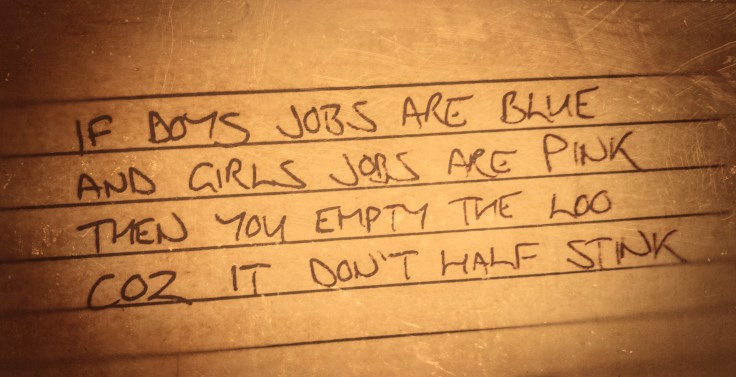 IF BOYS JOBS ARE BLUE
AND GIRLS JOBS ARE PINK
THEN YOU EMPTY THE LOO
COZ IT DON'T HALF STINK